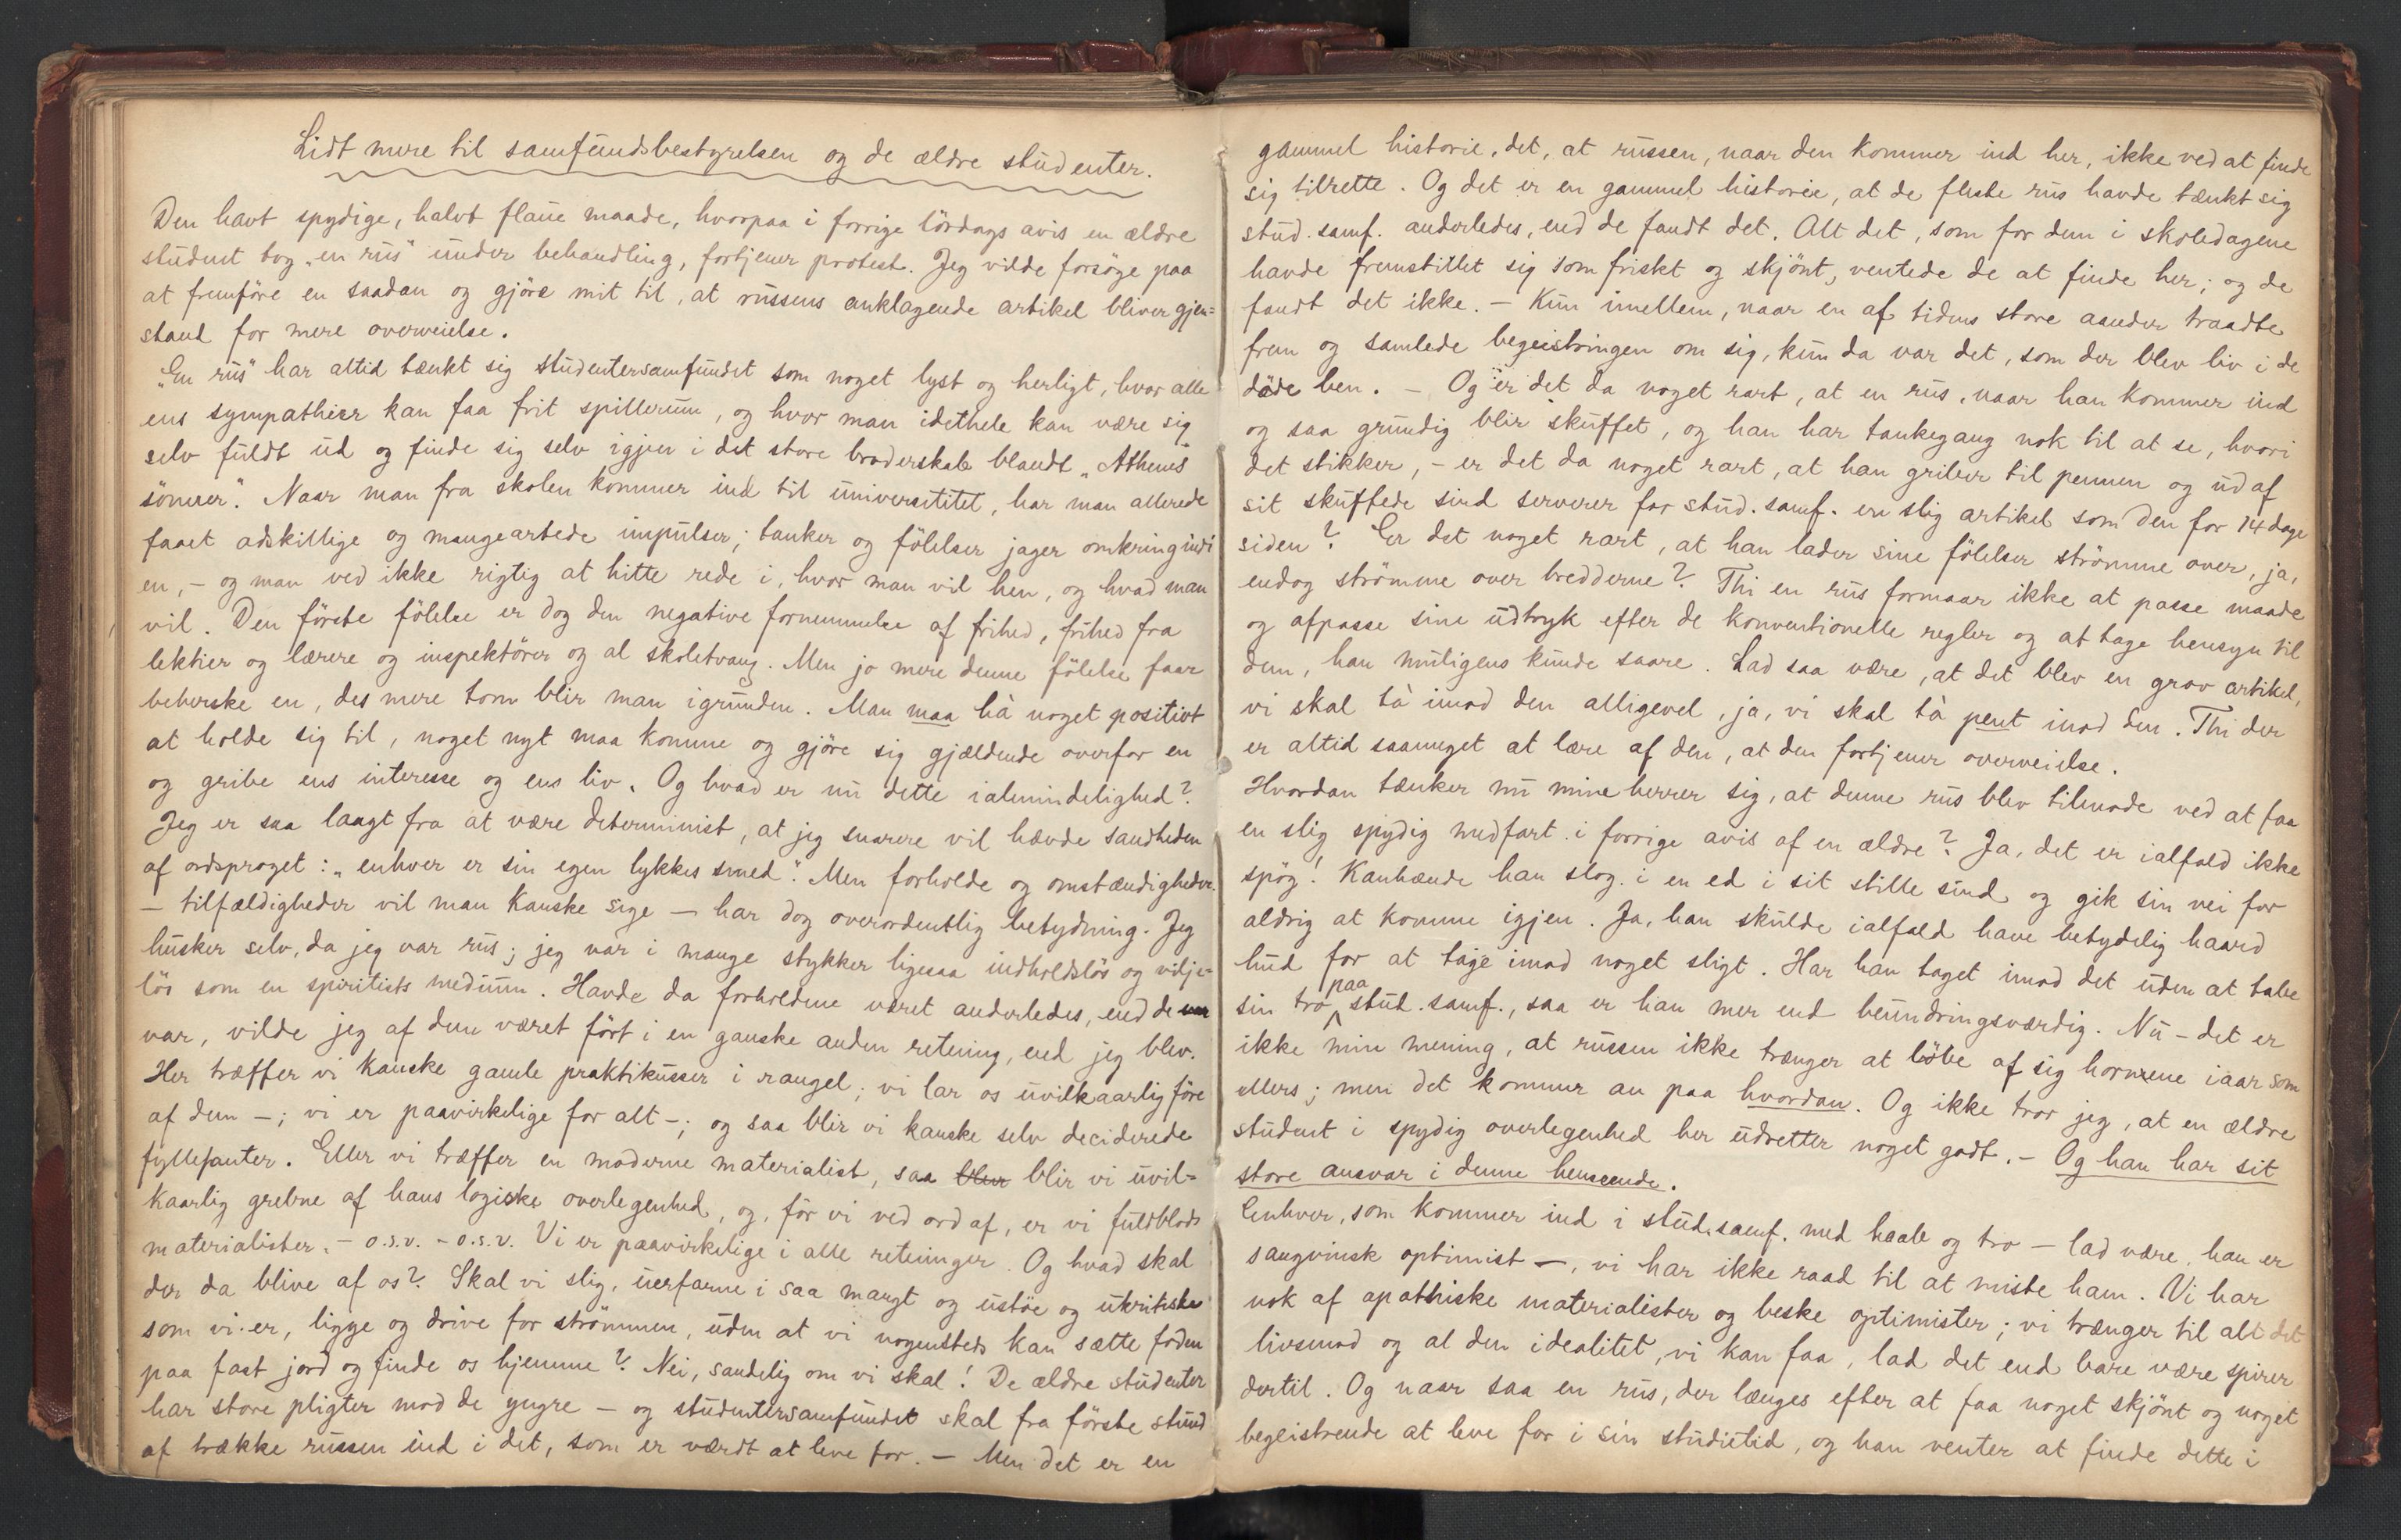 Lidt mere til samfundsbestyrelsen og de ældre studenter.
Den havt spydige, halvt flaue maade, hvorpaa i forrige lördags avis en ældre
student tog „en rus" under behandling, fortjener protest. Jeg vilde forsöge paa
at fremföre en saadan og gjöre mit til, at russens anklagende artikel bliver gjen=
stand for mere overveielse.
„En rus" har altid tænkt sig studentersamfundet som noget lyst og herligt, hvor alle
ens sympathier kan faa frit spillerum, og hvor man idethele kan være sig
selv fuldt ud og finde sig selv igjen i det store broderskab blandt „Athenes
sönner". Naar man fra skolen kommer ind til universitetet, har man allerede
faaet adskillige og mangeartede impulser; tanker og fölelser jager omkring indi
en, – og man ved ikke rigtig at hitte rede i, hvor man vil hen, og hvad man
vil. Den förste fölelse er dog den negative fornemmelse af frihed, frihed fra
lektier og lærere og inspektörer og al skoletvang. Men jo mere denne fölelse faar
beherske en, des mere tom blir man igrunden. Man maa hà noget positivt
at holde sig til, noget nyt maa komme og gjöre sig gjældende overfor en
og gribe ens interesse og ens liv. Og hvad er nu dette ialmindelighed?
Jeg er saa langt fra at være determinist, at jeg snarere vil hævde sandheden
af ordsproget: „enhver er sin egen lykkes smed". Men forholde og omstændigheder
– tilfældigheder vil man kanske sige – har dog overordentlig betydning. Jeg
husker selv, da jeg var rus; jeg var i mange stykker ligesaa indholdslös og vilje=
lös som en spiritists medium. Havde da forholdene været anderledes, end de
var, vilde jeg af dem været fört i en ganske anden retning, end jeg blev.
Her træffer vi kanske gamle praktikusser i rangel; vi lar os uvilkaarlig före
af dem –; vi er paavirkelige for alt –; og saa blir vi kanske selv deciderede
fyllefanter. Eller vi træffer en moderne materialist, saa blir vi uvil=
kaarlig grebne af hans logiske overlegenhed, og, för vi ved ord af, er vi fuldblods
materialister. – o.s.v. – o.s.v. Vi er paavirkelige i alle retninger. Og hvad skal
der da blive af os? Skal vi slig, uerfarne i saa mangt og ustöe og ukritiske
som vi er, ligge og drive for strömmen, uden at vi nogensteds kan sætte foden
paa fast jord og finde os hjemme? Nei, sandelig om vi skal! De ældre studenter
har store pligter mod de yngre – og studentersamfundet skal fra förste stund
af trække russen ind i det, som er værdt at leve for. – Men det er en
gammel historie, det, at russen, naar den kommer ind her, ikke ved at finde
sig tilrette. Og det er en gammel historie, at de fleste rus havde tænkt sig
stud. samf. anderledes, end de fandt det. Alt det, som for dem i skoledagene
havde fremstillet sig som friskt og skjönt, ventede de at finde her; og de
fandt det ikke. – Kun imellem, naar en af tidens store aander traadte
frem og samlede begeistringen om sig, kun da var det, som der blev liv i de
döde ben. – Og er det da noget rart, at en rus, naar han kommer ind
og saa grundig blir skuffet, og han har tankegang nok til at se, hvori
det stikker, – er det da noget rart, at han griber til pennen og ud af
sit skuffede sind serverer for stud. samf. en slig artikel som den for 14 dage
siden? Er det noget rart, at han lader sine fölelser strömme over, ja,
endog strömme over bredderne? Thi en rus formaar ikke at passe maade
og afpasse sine udtryk efter de konventionelle regler og at tage hensyn til
dem, han muligens kunde saare. Lad saa være, at det blev en grov artikel,
vi skal tà imod den alligevel, ja, vi skal tà pent imod den. Thi der
er altid saameget at lære af den, at den fortjener overveielse.
Hvordan tænker nu mine herrer sig, at denne rus blev tilmode ved at faa
en slig spydig medfart i forrige avis af en ældre? Ja, det er ialfald ikke
spög! Kanhænde han slog i en ed i sit stille sind og gik sin vei for
aldrig at komme igjen. Ja, han skulde ialfald have betydelig haard
hud for at tage imod noget sligt. Har han taget imod det uden at tabe
sin tro paa stud. samf., saa er han mer end beundringsværdig. Nu – det er
ikke min mening, at russen ikke trænger at löbe af sig hornene iaar som
ellers; men det kommer an paa hvordan. Og ikke tror jeg, at en ældre
student i spydig overlegenhed her udretter noget godt. – Og han har sit
store ansvar i denne henseende.
Enhver, som kommer ind i stud. samf. med haab og tro – lad være, han er
sangvinsk optimist –, vi har ikke raad til at miste ham. Vi har
nok af apathiske materialister og beske optimister; vi trænger til alt det
livsmod og al den idealitet, vi kan faa, lad det end bare være spirer
dertil. Og naar saa en rus, der længes efter at faa noget skjönt og noget
begeistrende at leve for i sin studietid, og han venter at finde dette i